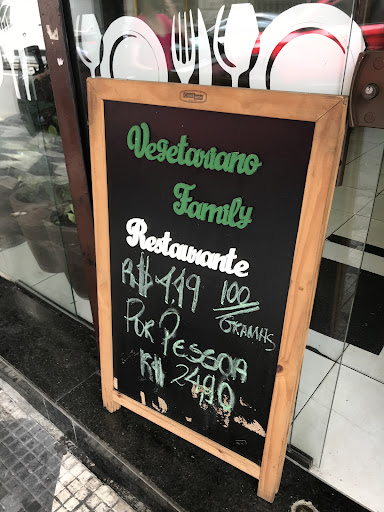 Vegetariano
Family
Restaurante
R$ 4,19 100
GRAMAS
POR PESSOA
R$ 24,90